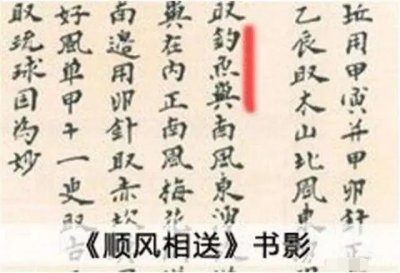 坵用甲寅并甲卯針正
乙辰取木山北風東
取釣魚嶼南風東湧
嶼在内正南風梅花
南邊用卯針取赤坎
好風单甲十一更取古
取琉球国為妙
《顺风相送》书影